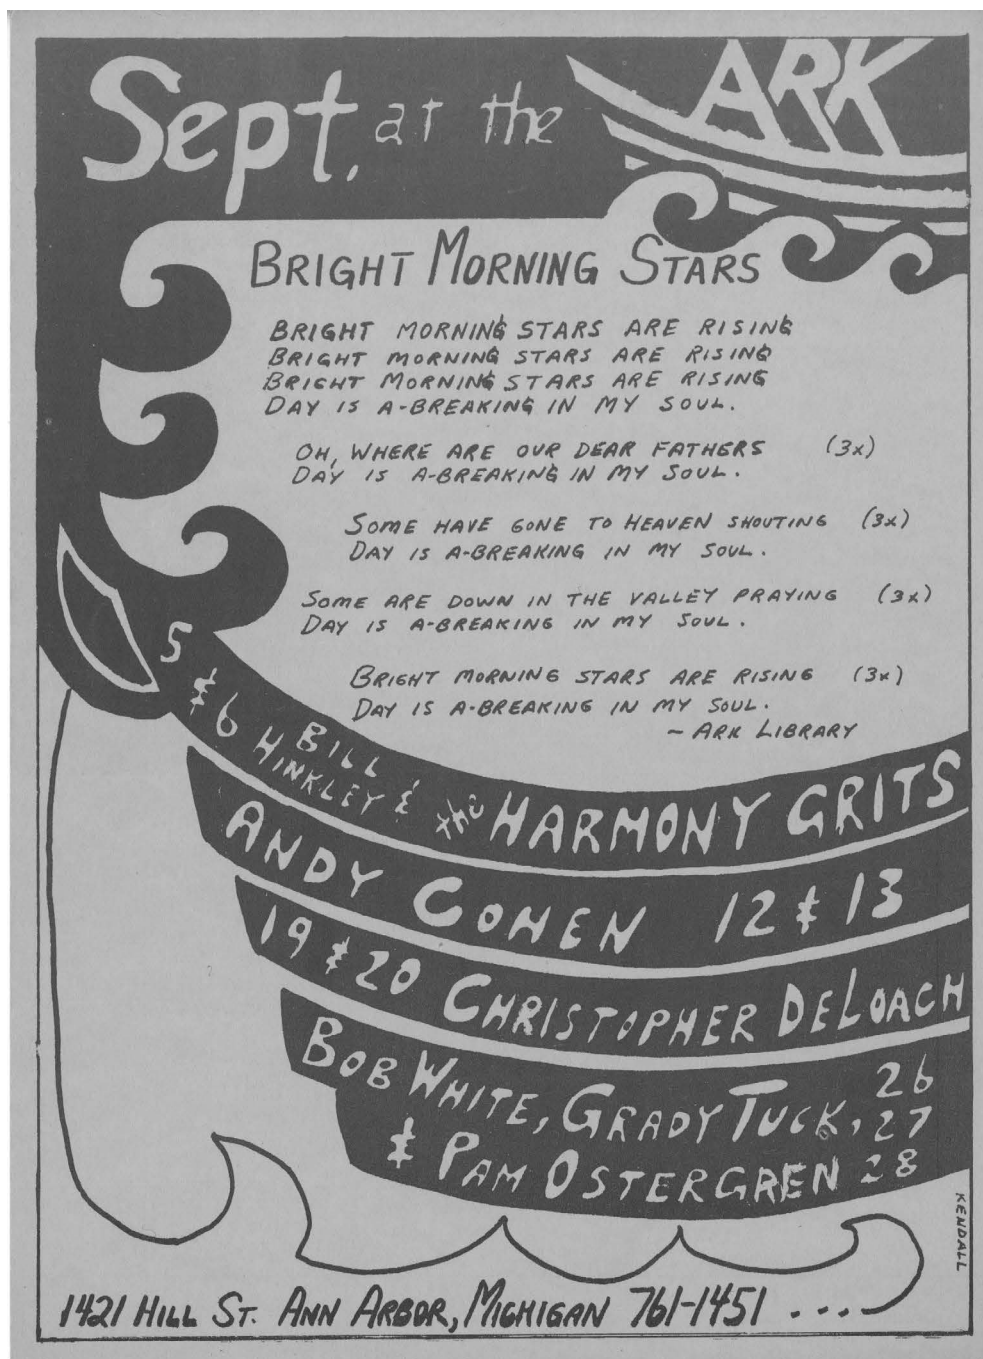 Sept. at the ARK
BRIGHT MORNING STARS
BRIGHT MORNING STARS ARE RISING
BRIGHT MORNING STARS ARE RISING
BRIGHT MORNING STARS ARE RISING
DAY IS A-BREAKING IN MY SOUL.
OH, WHERE ARE OUR DEAR FATHERS (3x)
DAY IS A-BREAKING IN MY SOUL.
SOME HAVE GONE TO HEAVEN SHOUTING (3x)
DAY IS A-BREAKING IN MY SOUL.
SOME ARE DOWN IN THE VALLEY PRAYING (3x)
DAY IS A-BREAKING IN MY SOUL.
BRIGHT MORNING STARS ARE RISING (3x)
DAY IS A-BREAKING IN MY SOUL.
~ ARK LIBRARY
5 & 6 BILL HINKLEY & the HARMONY GRITS
ANDY COHEN 12 & 13
19 & 20 CHRISTOPHER DELOACH
BOB WHITE, GRADY TUCK, 26 27
& PAM OSTERGREN 28
KENDALL
1421 HILL ST. ANN ARBOR, MICHIGAN 761-1451 ....